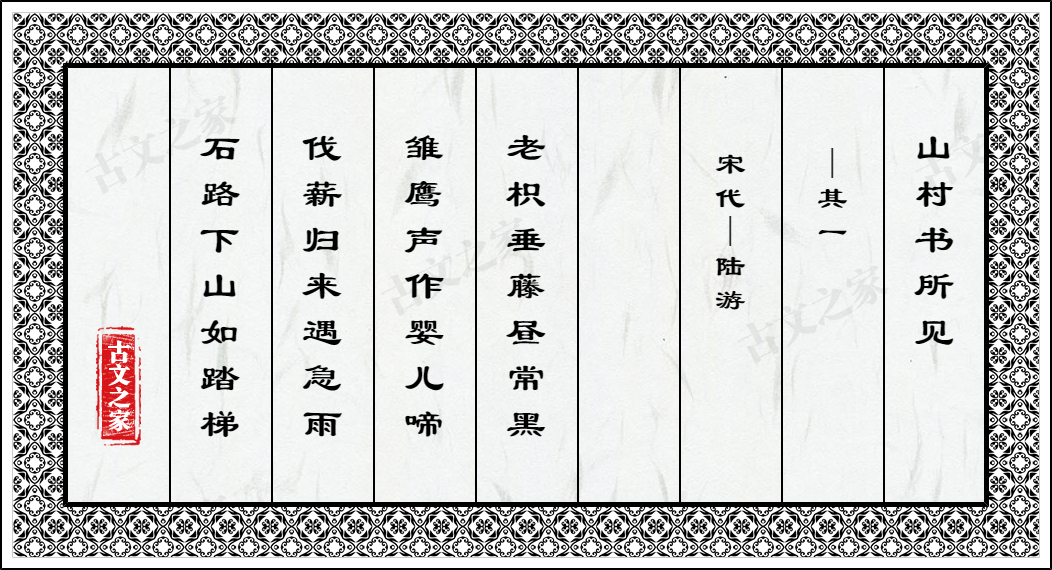 山村书所见
—其一
宋代—陆游
老枳垂藤昼常黑
雏鹰声作婴儿啼
伐薪归来遇急雨
石路下山如踏梯
古文之家
古文之家
古文之家
古文之家